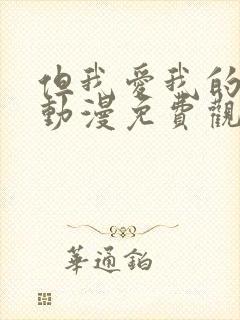 但我愛我的
動漫免費觀
華通鉑